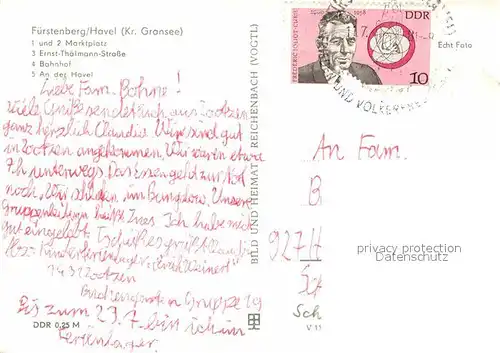 Fürstenberg/Havel (Kr. Gransee)
1 und 2 Marktplatz
3 Ernst-Thälmann-Straße
4 Bahnhof
5 An der Havel
Liebe Fam. Bohne!
viele Grüße sendet Euch aus Zootzen
ganz herzlich Claudia. Wir sind gut
in Zootzen angekommen. Wir waren etwa
7h unterwegs. Das Essen geht zur Not
noch. Wir schlafen im Bungalow. Unsere
Gruppenleiterin heißt Ines. Ich habe mich
gut eingelebt. Tschüß es grüßt Claudia
Abs. Kinderferienlager "Erich Weinert"
1431 Zootzen
Gruppe 19
Bis zum 29.7 bin ich im
Ferienlager.
DDR 0,25 M
BILD UND HEIMAT REICHENBACH (VOGTL)
FREDERIC JOLIOT-CURIE
1958
DDR
10
UND VÖLKERFRE
Echt Foto
An Fam.
B
927
privacy protection
Datenschutz
Sch
V 11